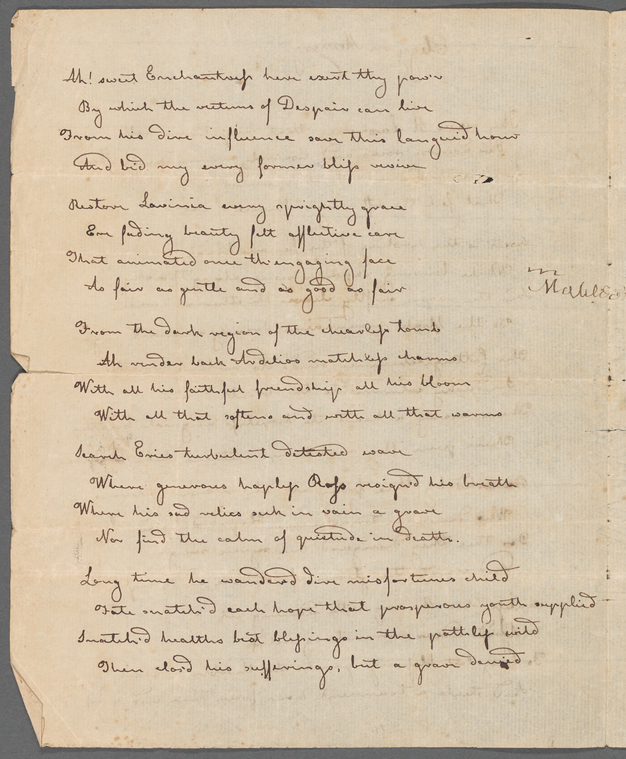 Ah! sweet Enchantress here exert thy pow'r
By which the victims of Despair can live
From his dire influence save this languid hour
And bid my every former bliss revive
Restore Lavinia every sprightly grace
Ere fading beauty felt afflictive care
That animated once th'engaging face
As fair as gentle and as good as fair
From the dark region of the chearless tomb
Ah render back Ardelios matchless charms
With all his faithful friendship all his bloom
With all that softens and with all that warms
Search Eries turbulent detested wave
Where generous hapless Ross resign'd his breath
Where his sad relics seek in vain a grave
Nor find the calm of quietude in death.
Long time he wander'd dire misfortunes child
Fate snatch'd each hope that prosperous youth supplied
Snatch'd healths best blessings in the pathless wild
Then clos'd his sufferings, but a grave denied